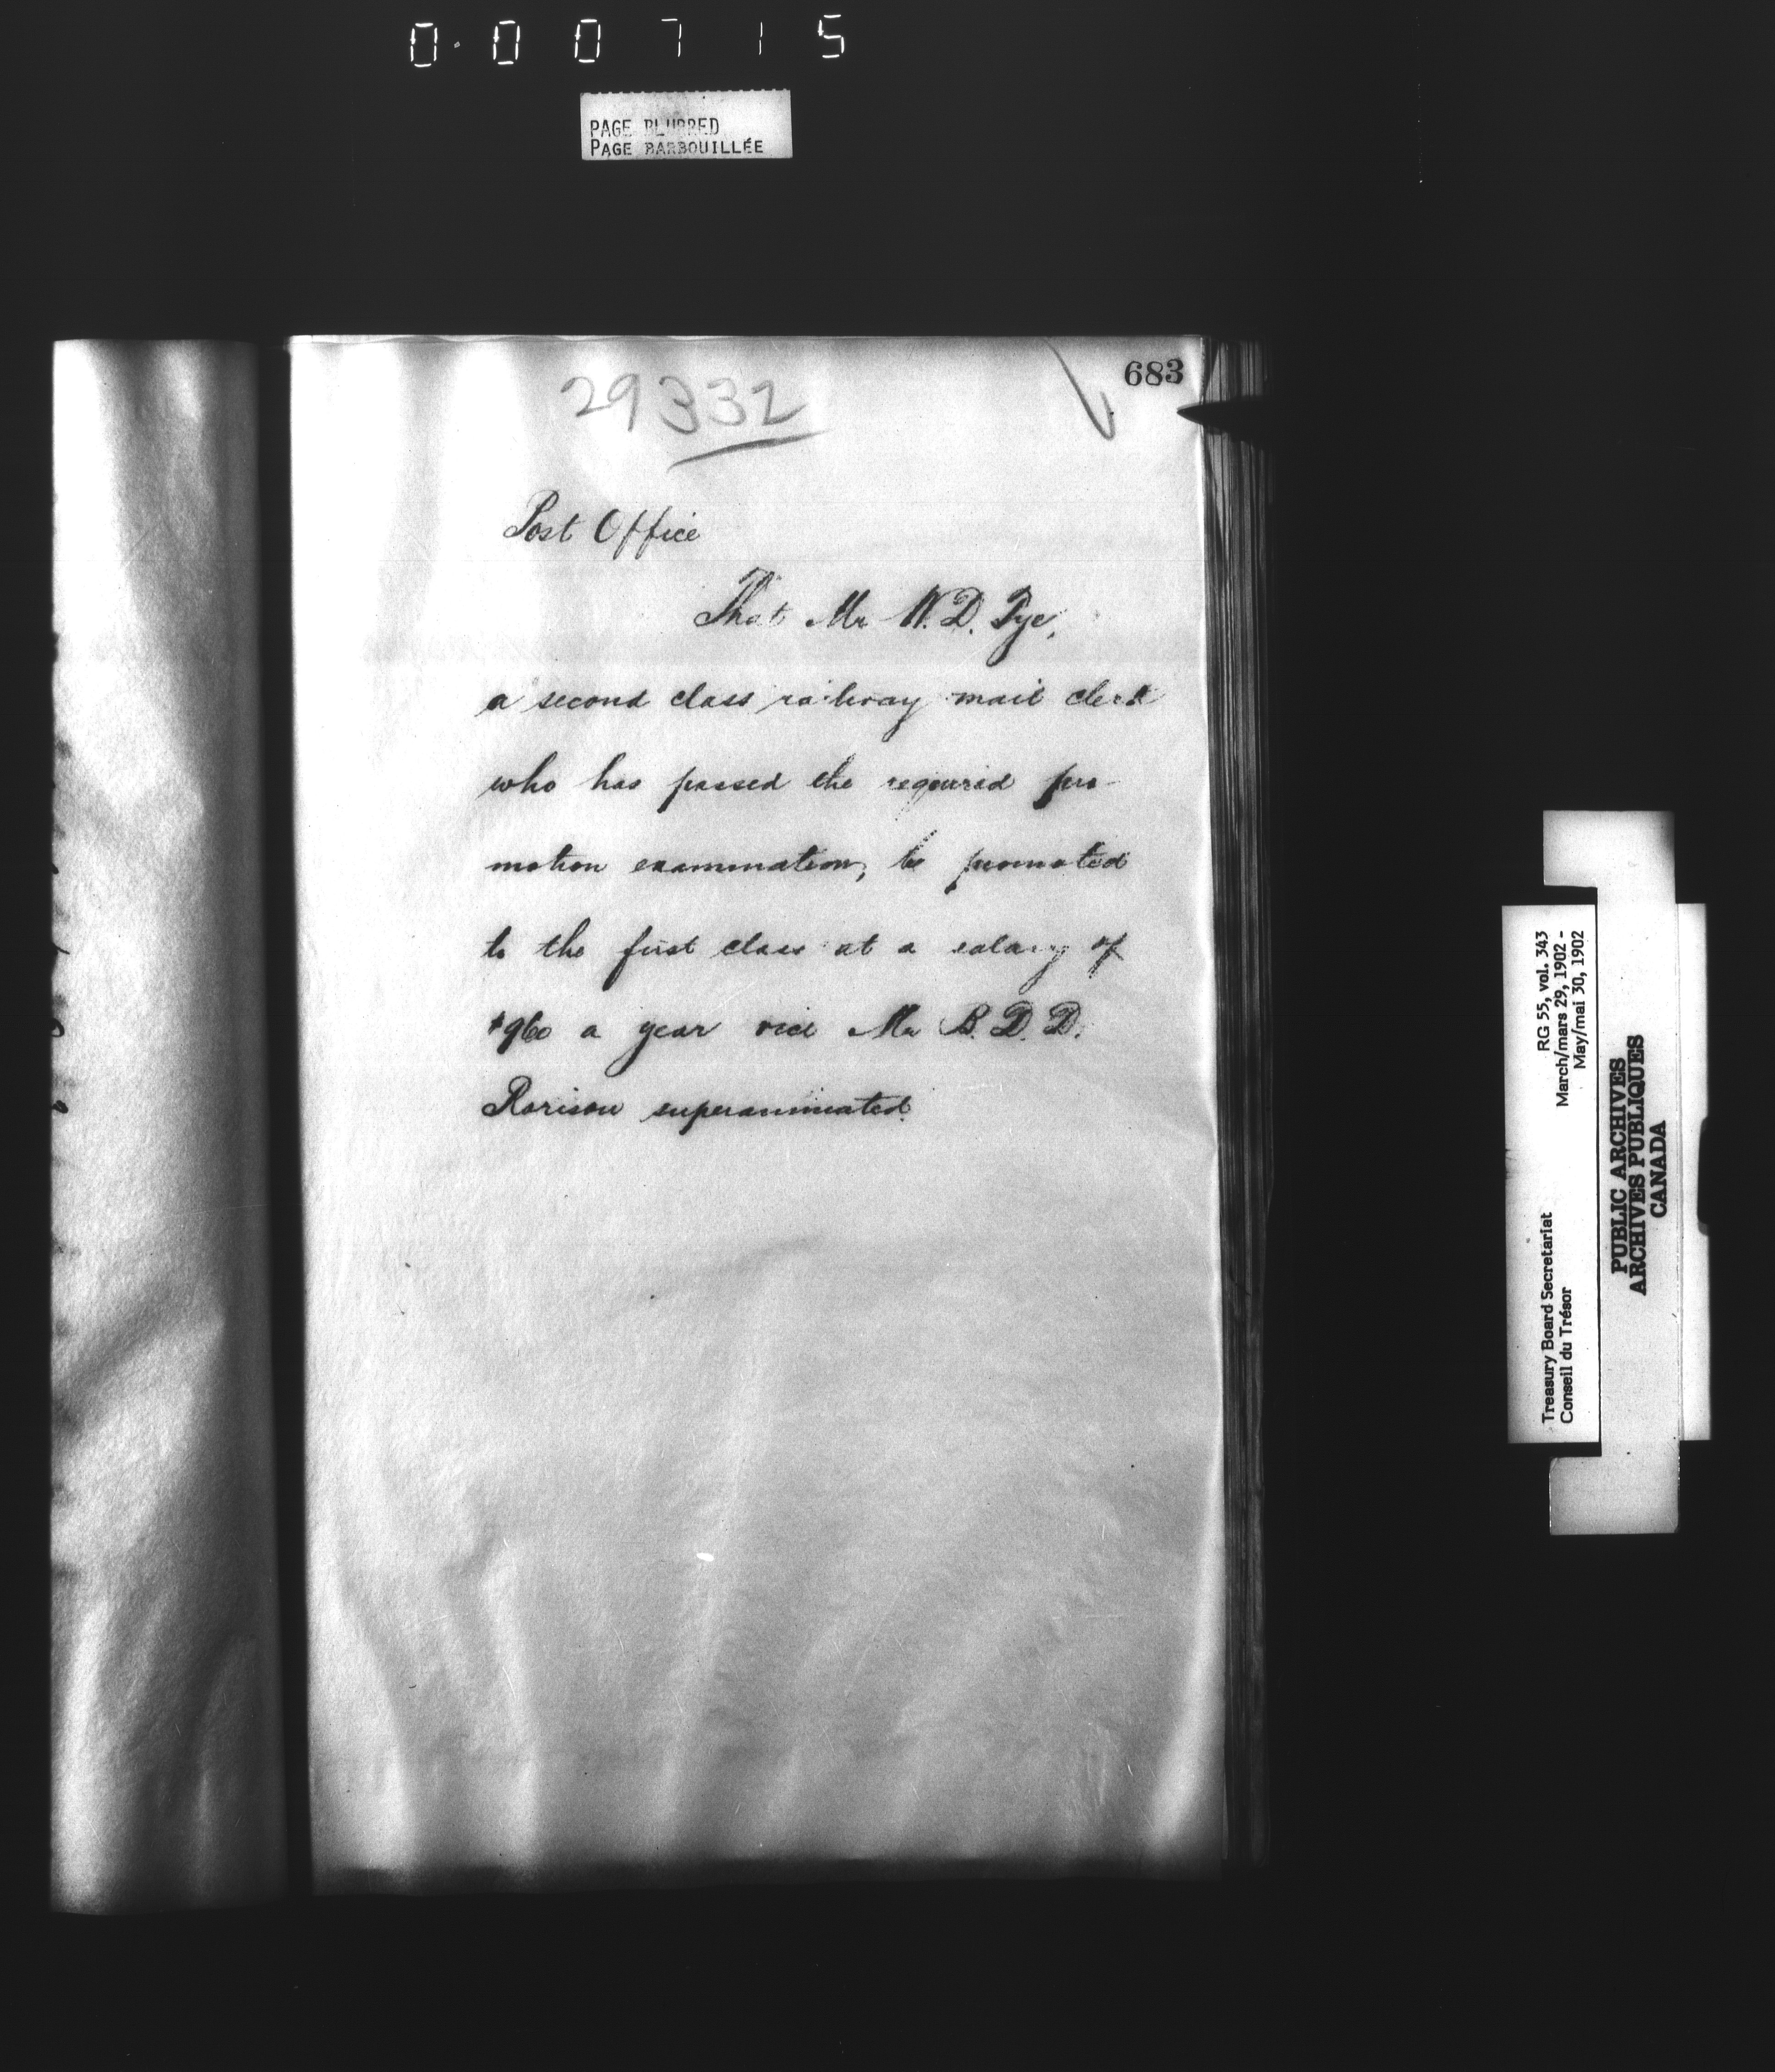 000715
PAGE BLURRED
PAGE BARBOUILLÉE
683
29332
Post Office
That Mr W. D. Pye,
a second class railway mail clerk
who has passed the required pro-
motion examination, be promoted
to the first class at a salary of
$960 a year vice Mr B. D. D.
Rorison superannuated.
RG 55, vol. 343
March/mars 29, 1902 -
May/mai 30, 1902
Treasury Board Secretariat
Conseil du Trésor
PUBLIC ARCHIVES
ARCHIVES PUBLIQUES
CANADA